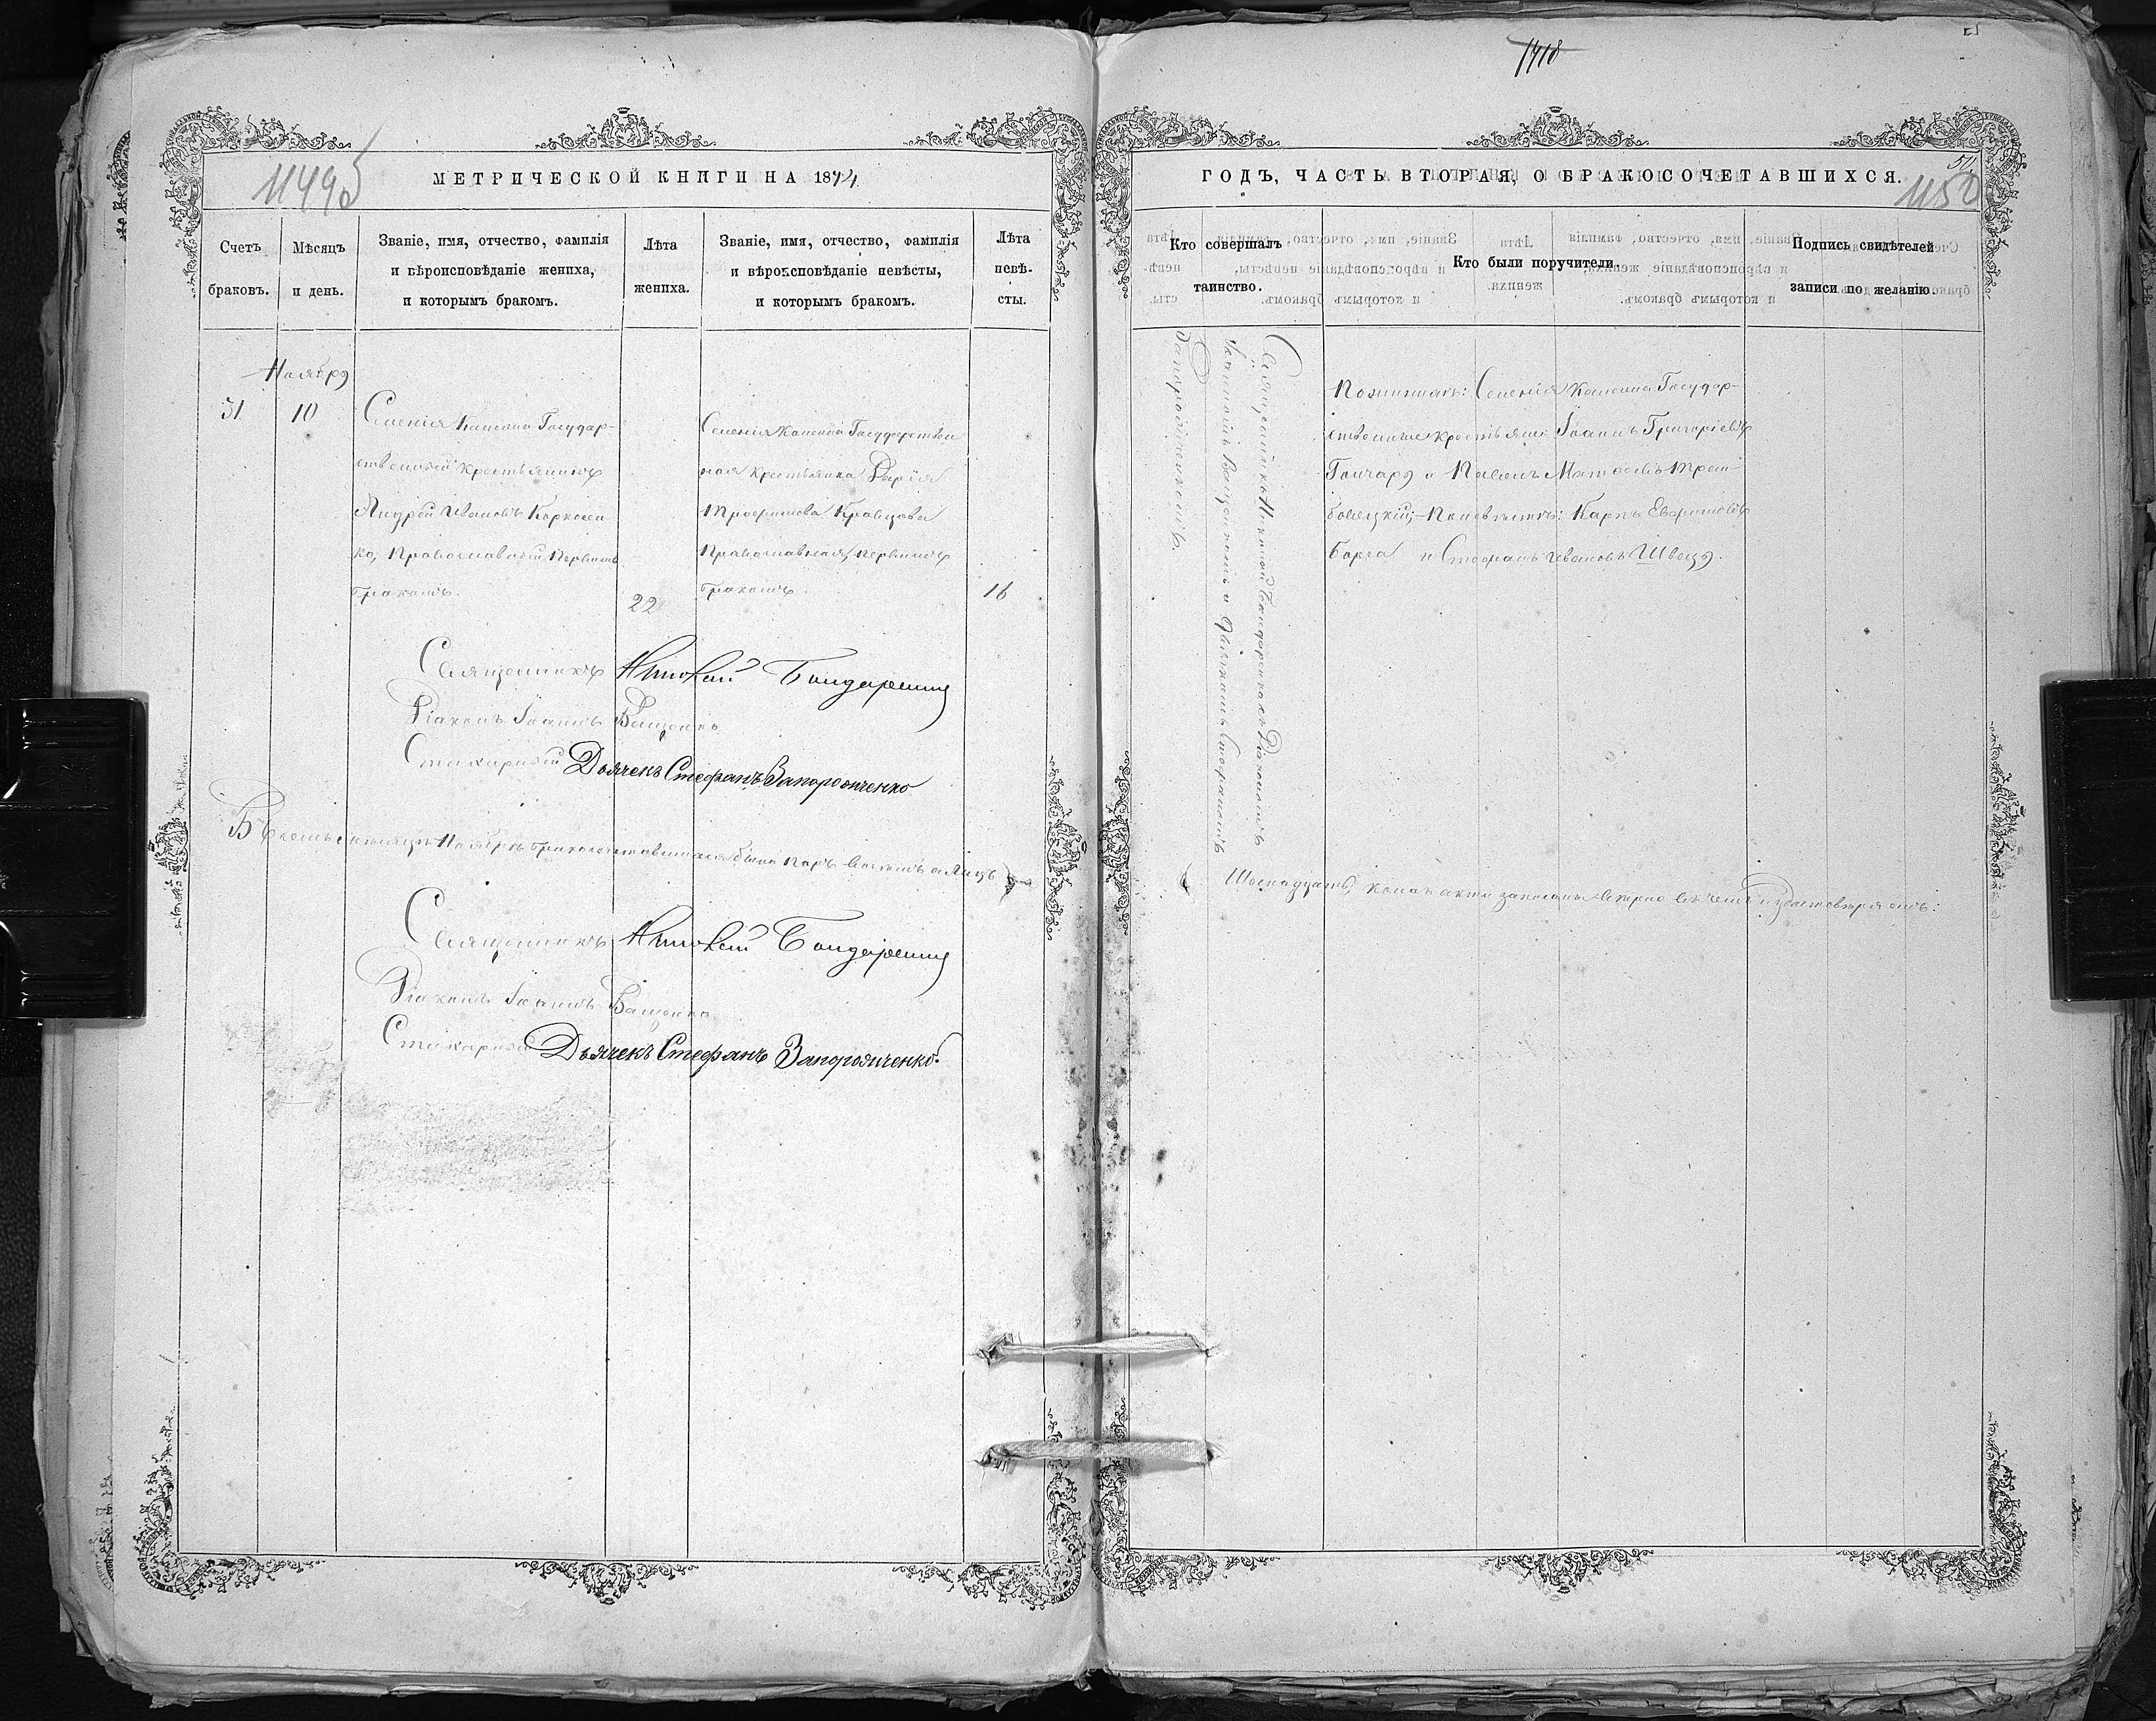 1149б
МЕТРИЧЕСКОЙ КНИГИ НА 1874
Счетъ браковъ.
Мѣсяцъ и день.
Званіе, имя, отчество, фамилія
и вѣроисповѣданіе жениха,
и которымъ бракомъ.
Лѣта жениха.
Званіе, имя, отчество, фамилія
и вѣроисповѣданіе невѣсты,
и которымъ бракомъ.
Лѣта невѣ-
сты.
Ноября
31
10
Селенія Каменки Государ-
ственный крестьянинъ
Андрей Ивановъ
ко, Православный, первымъ
бракомъ.
22
Селенія Каменки Государствен
ная крестьянка Дарія
Трофимова Кравцова
Православная, первымъ
бракомъ.
16
Священникъ Николай Бондаренко
Діаконъ Іоаннъ Ващенко
Стихарный Дьячекъ Стефанъ Запорожченко
Въ семъ мѣсяцѣ Ноябрѣ бракосочетавшихся было паръ восемь а лицъ
Священникъ Николай Бондаренко
Діаконъ Іоаннъ Ващенко
Стихарный Дьячекъ Стефанъ Запорожченко.
1418
51
1150
ГОДЪ, ЧАСТЬ ВТОРАЯ, О БРАКОСОЧЕТАВШИХСЯ.
Кто совершалъ
таинство.
Кто были поручители.
Подпись свидѣтелей
записи по желанію.
Священникъ Николай Бондаренко съ Діакономъ
Іоанномъ Ващенкомъ и Дьячкомъ Стефаномъ
Запорожченкомъ.
По женихѣ: Селенія Каменки Государ-
ственные крестьяне: Іоаннъ Григоріевъ
Гончаръ и Павелъ Матвѣевъ Трем-
бовецкій; – По невѣстѣ: Карпъ Евфимовъ
и Стефанъ Ивановъ Швецъ.
Шестнадцать, акти записаны вѣрно въ чемъ и удостовѣряемъ: